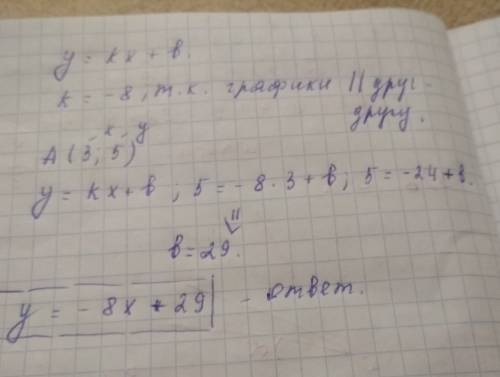 y = kx + b.
k = -8, т.к. графики || друг
другу.
x y
A (3; 5)
y = kx + b ; 5 = -8 · 3 + b; 5 = -24 + b.
⇓
b = 29.
y = -8x + 29 - ответ.